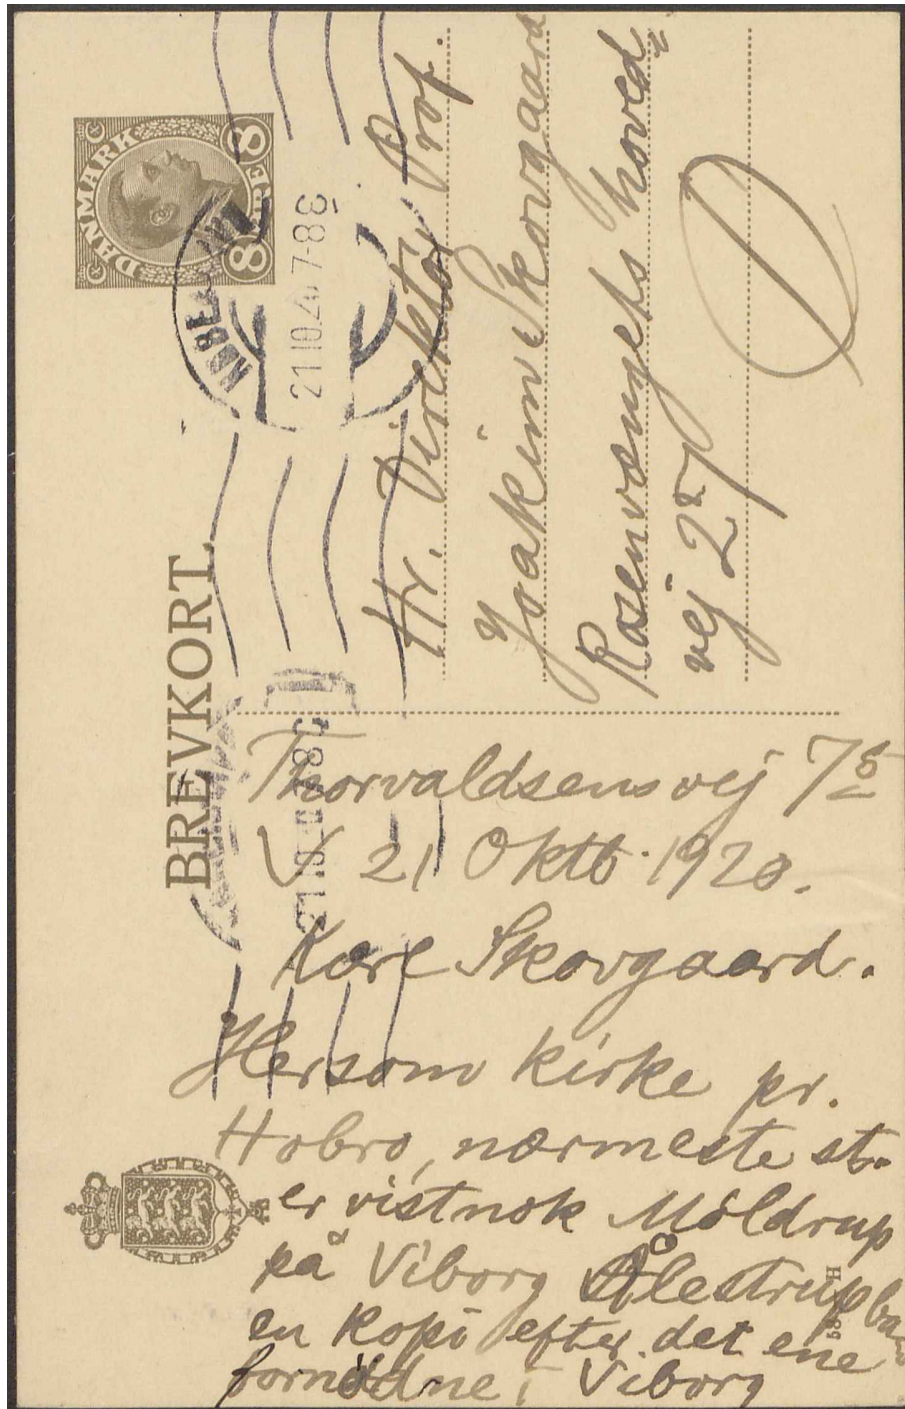 DANMARK
8 8
KØBENHAVN
21.10.20 7-8 E
BREVKORT.
Hr. Direktör Prof.
Joakim Skovgaard
Rosenvængets hoved
vej 27
Thorvaldsensvej 7
V 21 Oktb. 1920.
Kære Skovgaard.
Hersom Kirke pr.
Hobro, nærmeste st.
er vistnok Möldrup
på Viborg Ålestrup
en kopi efter det ene
i Viborg